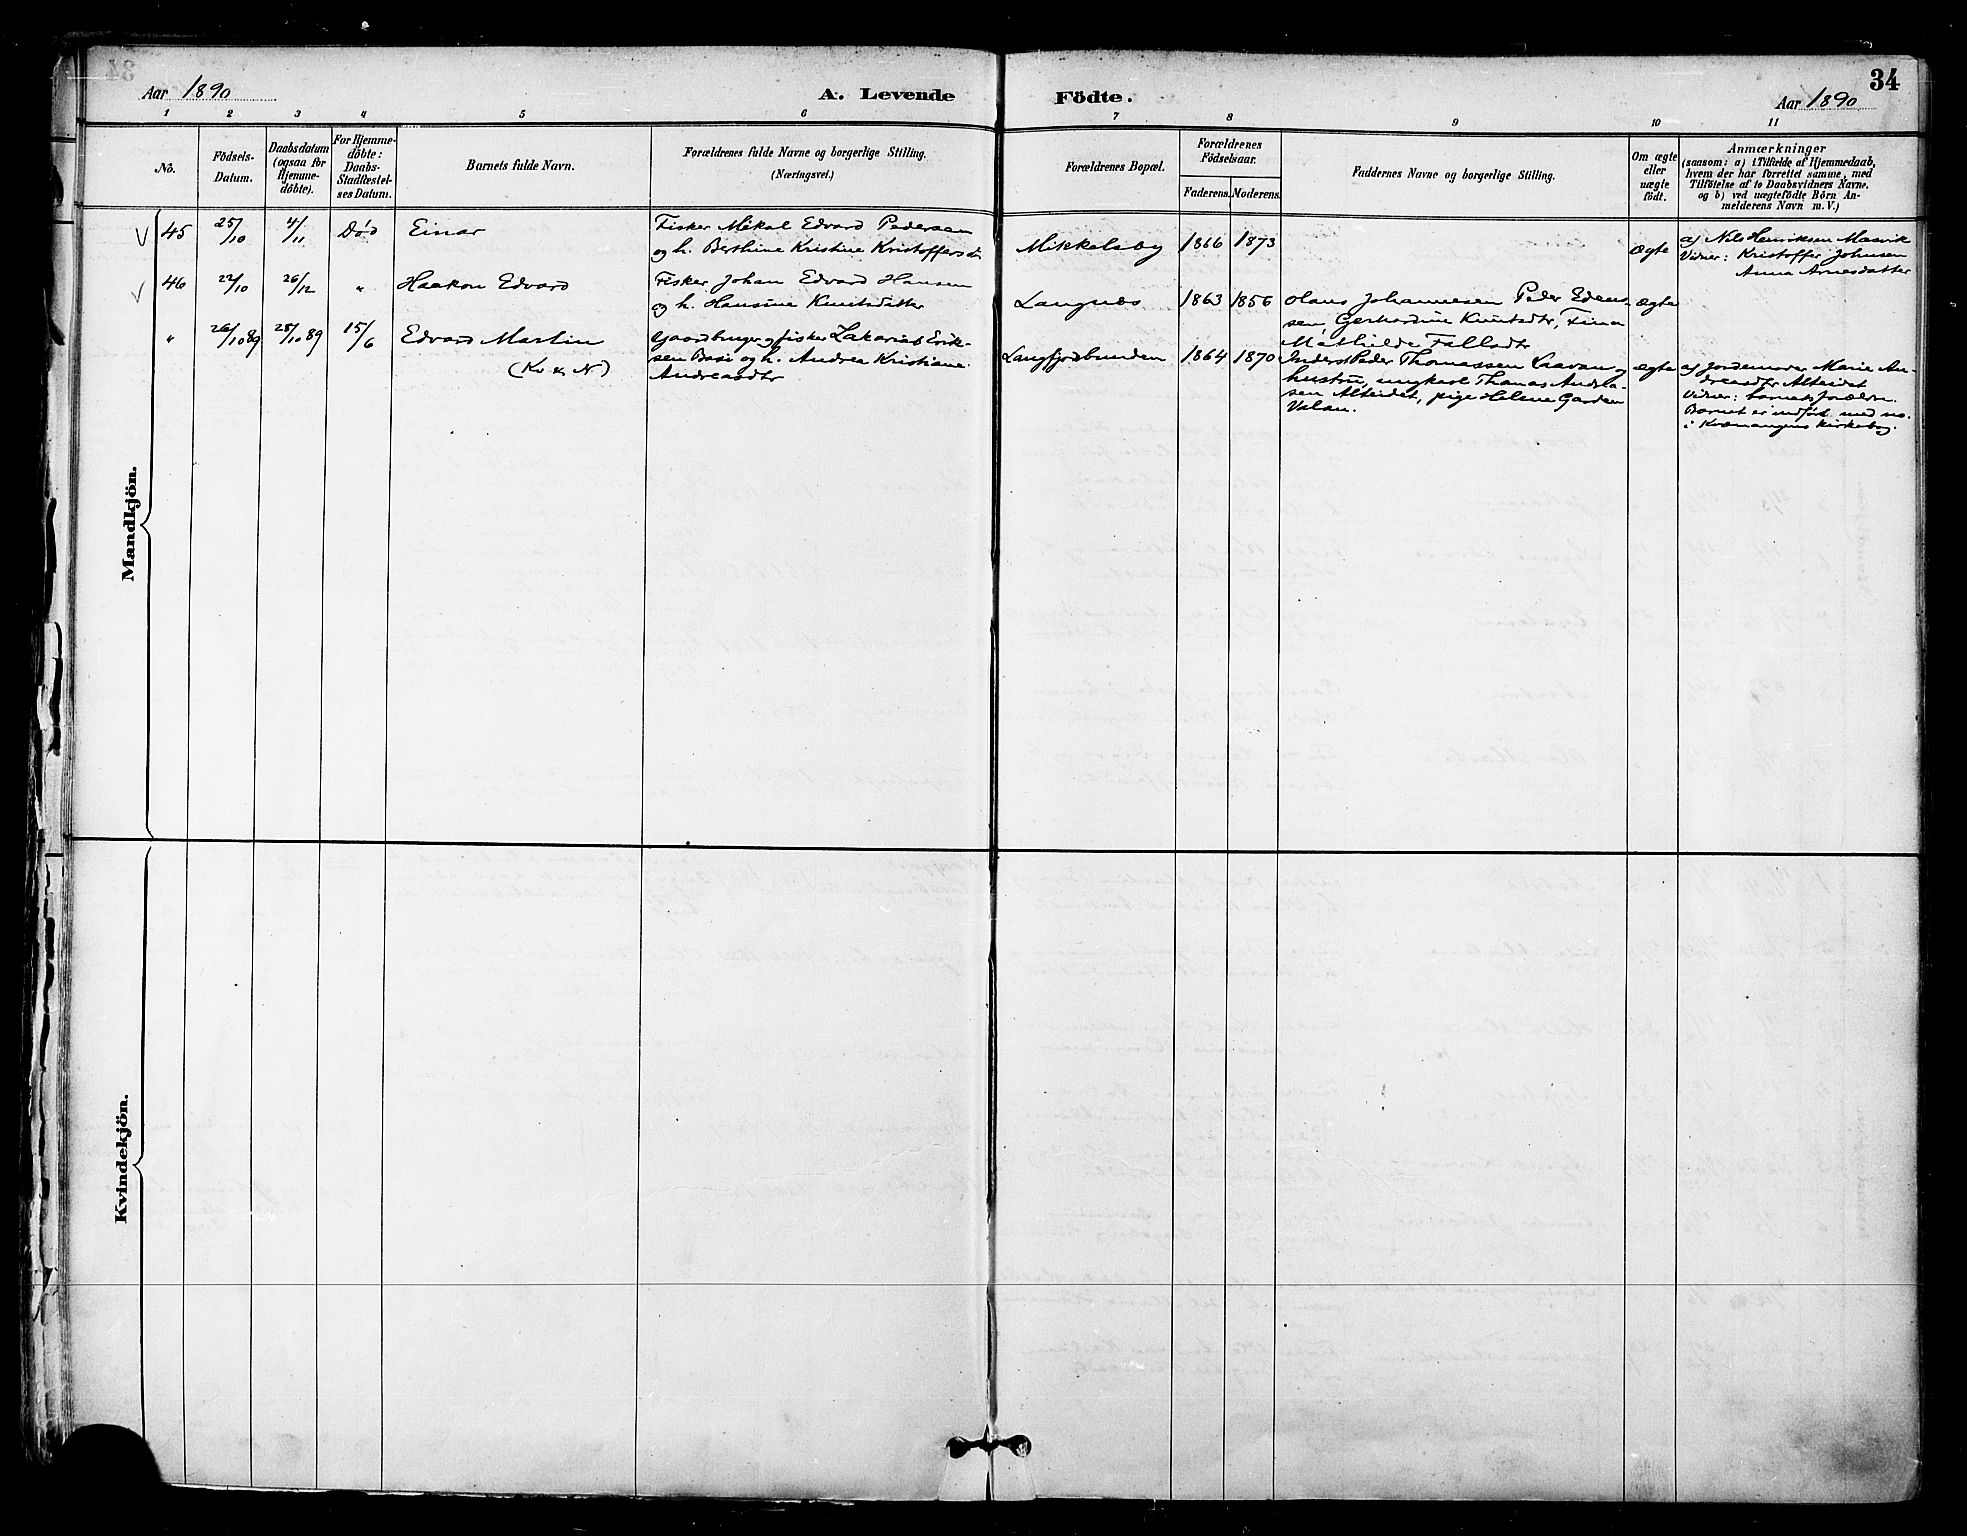 34
Aar 1890
A. Levende Födte.
Aar 1890
1 2 3 4 5 6 7 8 9 10 11
No.
Födsels-
Datum.
Daabsdatum
(ogsaa for
Hjemme-
döbte).
For Hjemme-
döbte:
Daabs-
Stadfæstel-
ses Datum.
Barnets fulde Navn.
Forældrenes fulde Navne og borgerlige Stilling.
(Næringsvei.)
Forældrenes Bopæl.
Forældrenes
Födselsaar.
Faderens. Moderens.
Faddernes Navne og borgerlige Stilling.
Om ægte
eller
uægte
födt.
Anmærkninger
(saasom: a) i Tilfælde af Hjemmedaab,
hvem der har forrettet samme, med
Tilföielse af to Daabsvidners Navne.
og b) ved uægtefödte Börn An-
melderens Navn m. V.)
Mandkjön.
45 25/10 4/11 Død Einar
Fisker Mikal Edvard Pedersen
og h. Berthine Kristine Kristoffersdt
Mikkelsby 1866 1873
ægte
a) Nils Henriksen Masvik
Vidner: Kristoffer Johnsen
Anna Arnesdatter
46 22/10 26/12 " Haakon Edvard
Fisker Johan Edvard Hansen
og h. Hansine Knutsdatter
Langnæs 1863 1856
Johannesen Peder Edens-
sen, Gerhardine Knutsdtr,
Mathilde Fallsdtr
ægte
" 26/10 89 28/10 89 15/6 Edvard Martin
(Kv & N)
Gaardbruger og fisker Zakarias Erik-
sen Basi og h. Andrea Kristiane
Andreasdtr
Langfjordbunden 1864 1870
Inderst Peder Thomassen Laavan og
hustru, ungkarl Thomas Andrea-
sen Alteidet, pige Helene Garden
Valan.
ægte
a) Jordemoder Marie An-
dreasdtr Alteidet
Vidner: barnets forældre.
Barnet er indført med no.
i Kvænangens kirkebog.
Kvindekjön.